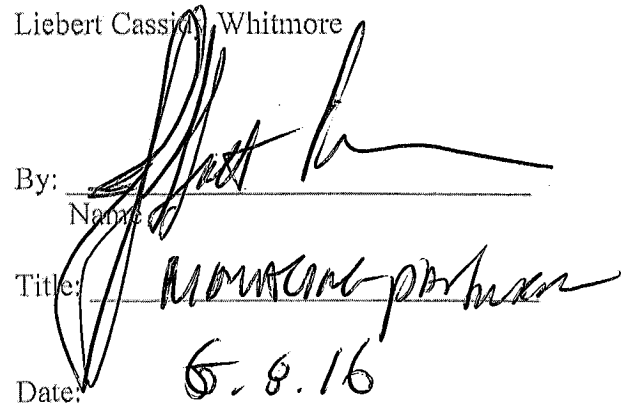 Liebert Cassidy Whitmore
By:
Name
Title: MANAGING PARTNER
Date: 6.8.16